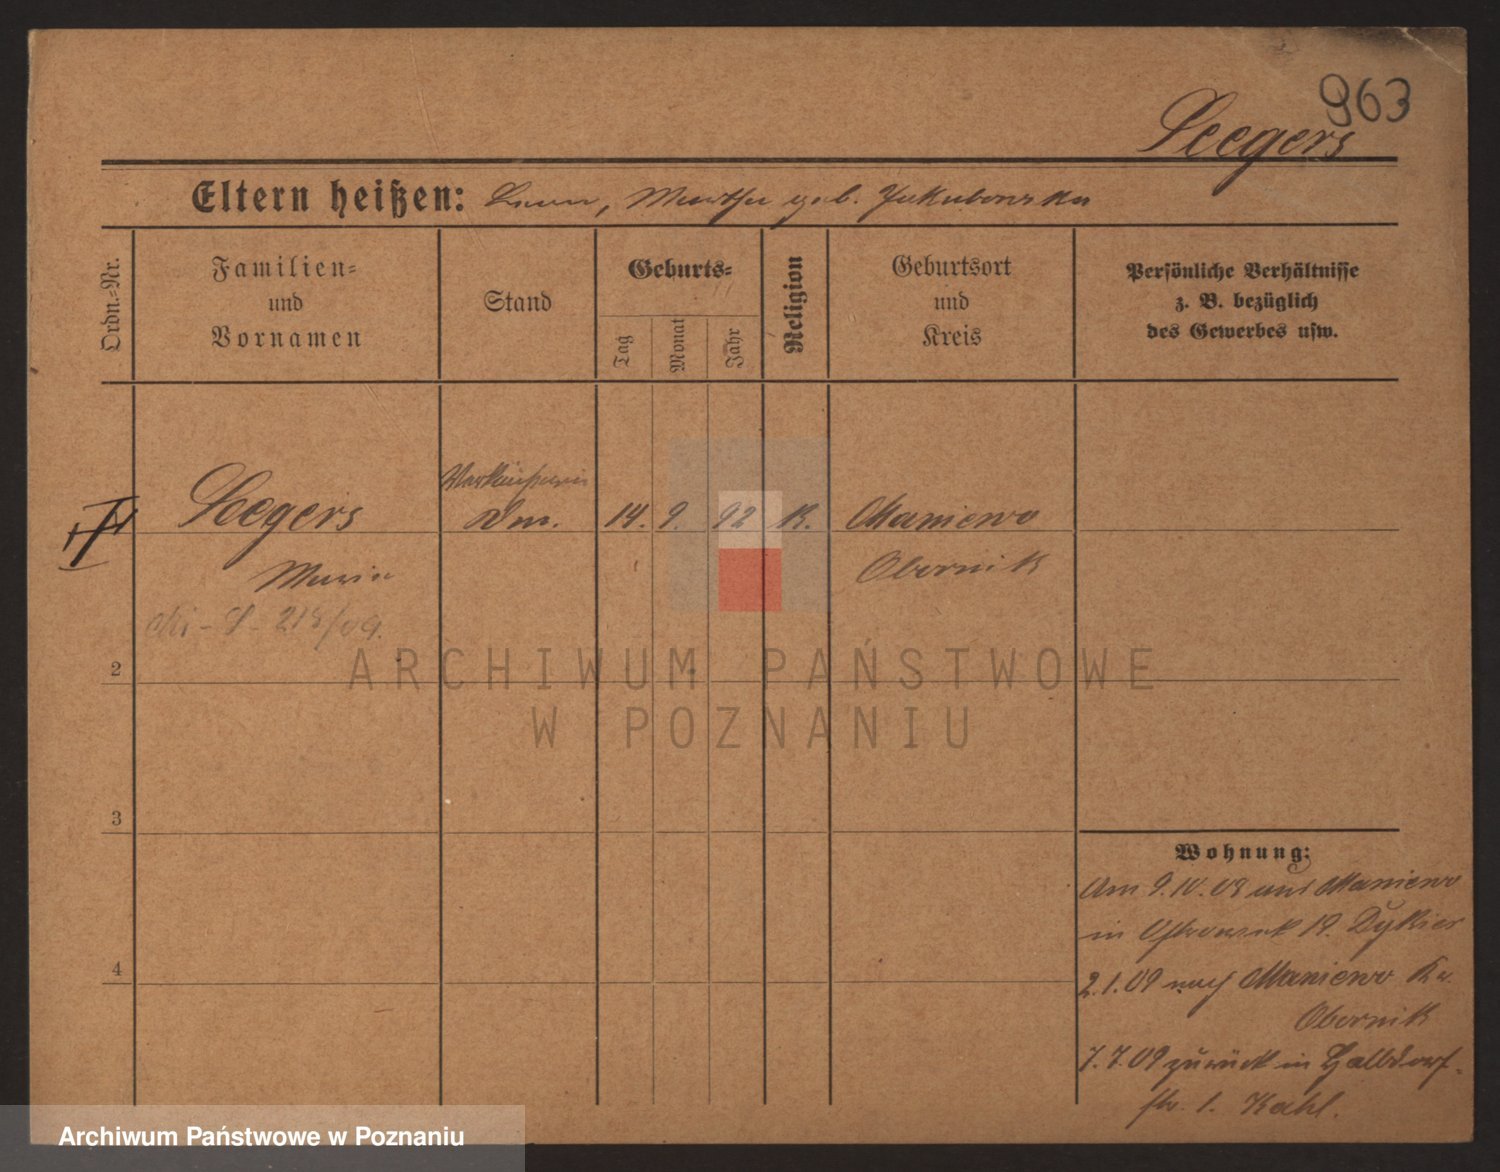 963
Seegers
Eltern heißen: Leon, Martha geb. Jakubowska
Ordn.-Nr.
Familien-
und
Vornamen
Stand
Geburts-
Tag
Monat
Jahr
Religion
Geburtsort
und
Kreis
Persönliche Verhältnisse
z. B. bezüglich
des Gewerbes usw.
Verkäuferin
Seegers
14. 9. 92 K. Maniewo
Marie
Obornik
218/09.
2
ARCHIWUM PAŃSTWOWE
W POZNANIU
3
Wohnung:
Am 9. IV. 08 aus Maniewo
in 19. Dykier
4
2.1.09 nach Maniewo Kr.
Obornik
7.7.09 zurück in Halbdorf-
str. 1. Kahl.
Archiwum Państwowe w Poznaniu